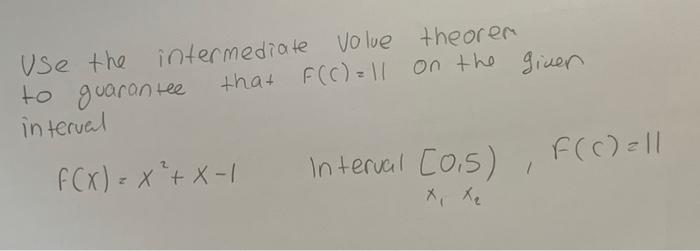 Use the intermediate value theorem
to guarantee that F(C)=11 on the given
interval
f(x) = x²+x-1 Interval [0,5) , F(C)=11
x₁ x₂